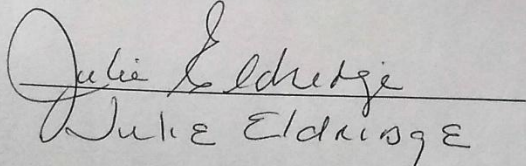 Julie Eldredge
Julie Eldridge